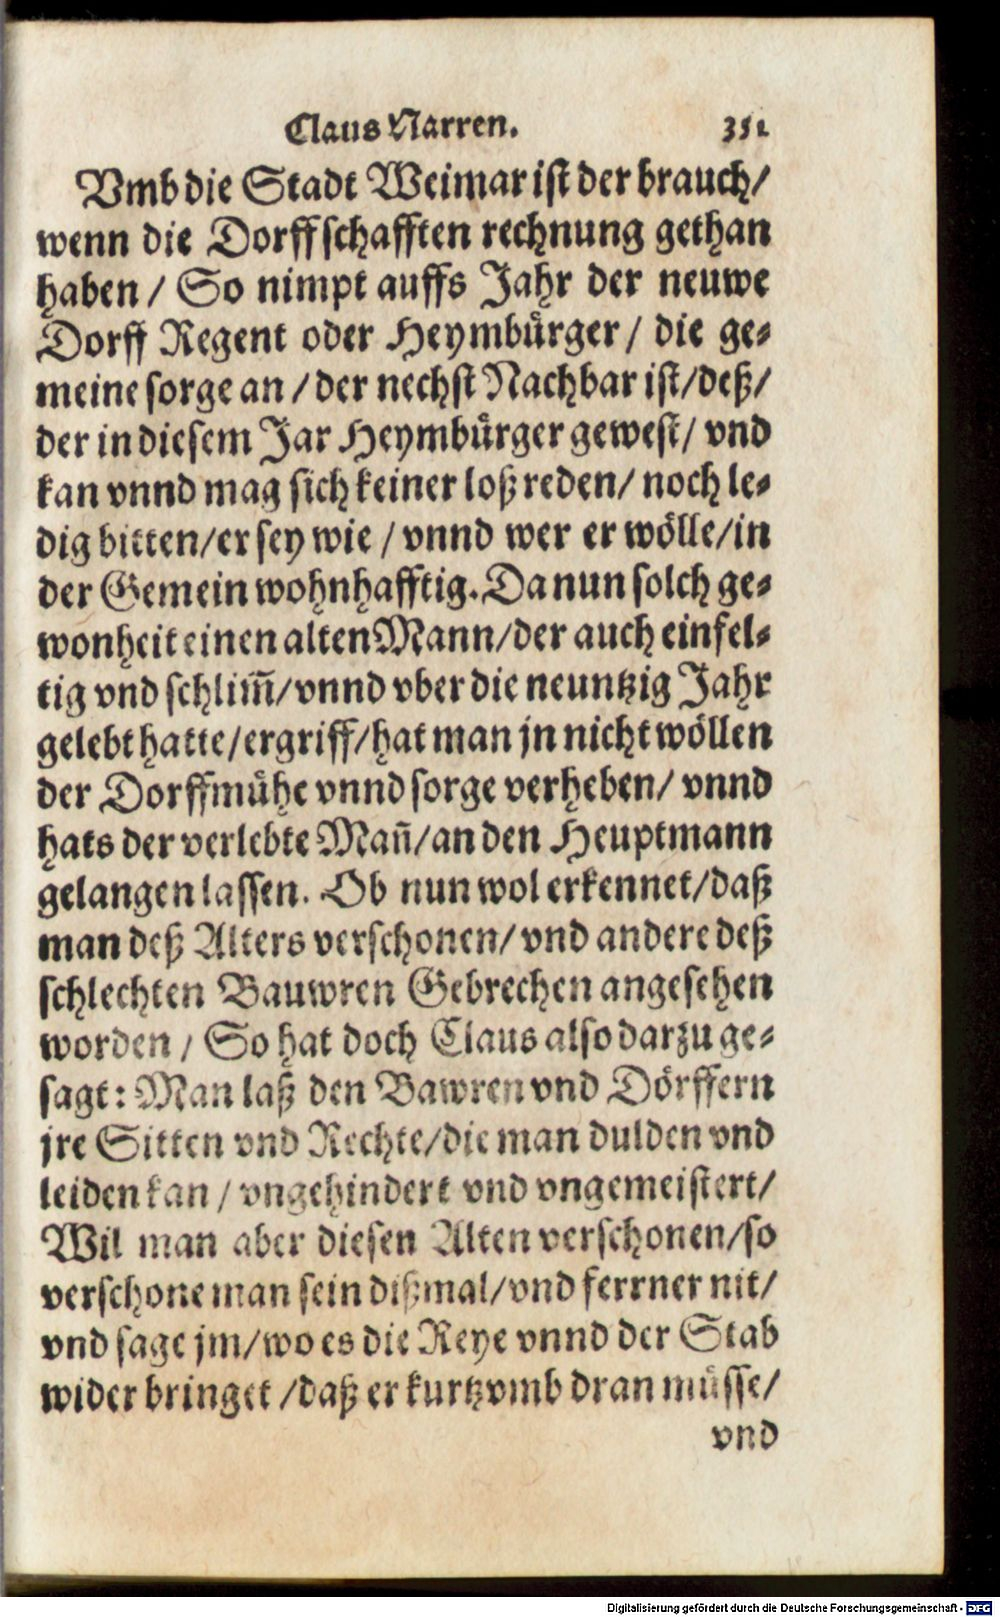 Claus Narren. 351
Vmb die Stadt Weimar ist der brauch/
wenn die Dorffschafften rechnung gethan
haben / So nimpt auffs Jahr der neuwe
Dorff Regent oder Heymbürger / die ge-
meine sorge an / der nechst Nachbar ist/deß/
der in diesem Jar Heymbürger gewest/ vnd
kan vnnd mag sich keiner loß reden/ noch le-
dig bitten/er sey wie / vnnd wer er wölle/in
der Gemein wohnhafftig. Da nun solch ge-
wonheit einen alten Mann/der auch einfel-
tig vnd schlim̃/vnnd vber die neuntzig Jahr
gelebt hatte/ergriff/hat man jn nicht wöllen
der Dorffmühe vnnd sorge verheben/ vnnd
hats der verlebte Mañ/an den Heuptmann
gelangen lassen. Ob nun wol erkennet/daß
man deß Alters verschonen/ vnd andere deß
schlechten Bauwren Gebrechen angesehen
worden / So hat doch Claus also darzu ge-
sagt: Man laß den Bawren vnd Dörffern
jre Sitten vnd Rechte/die man dulden vnd
leiden kan / vngehindert vnd vngemeistert/
Wil man aber diesen Alten verschonen/so
verschone man sein dißmal/vnd ferrner nit/
vnd sage jm/wo es die Reye vnnd der Stab
wider bringet /daß er kurtzvmb dran müsse/
vnd
Digitalisierung gefördert durch die Deutsche Forschungsgemeinschaft - DFG